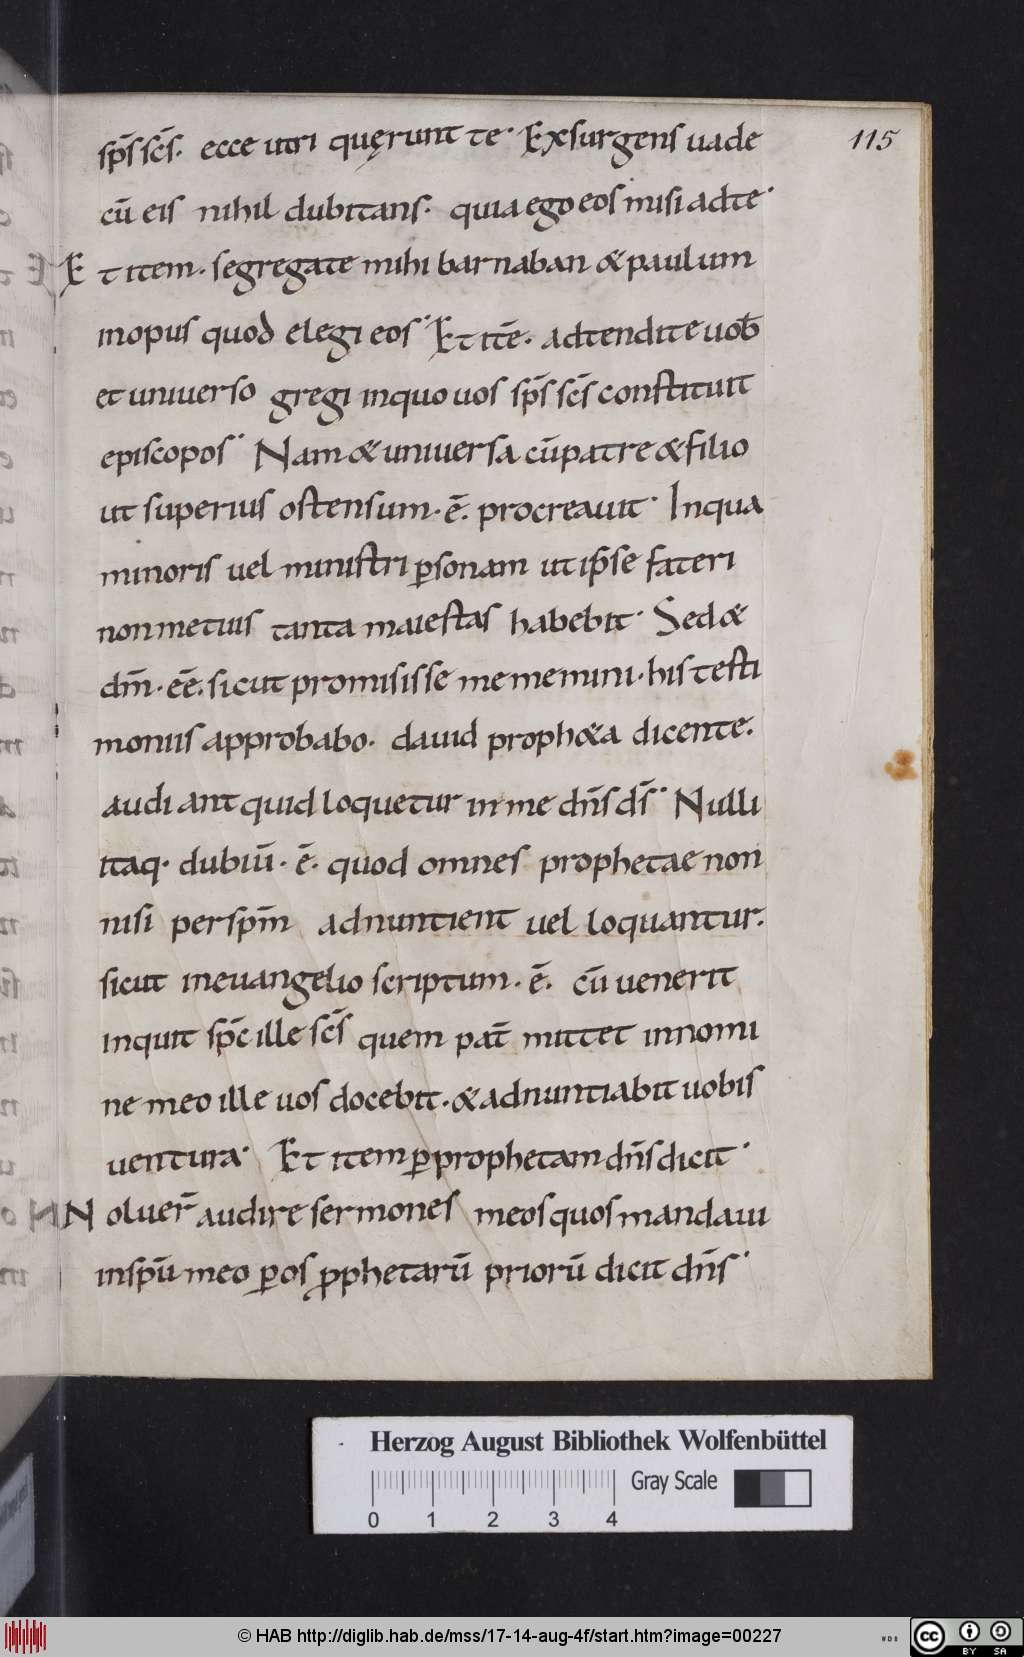 115
sp̄s sc̄s. ecce uiri quęrunt te. Exsurgens uade
cū eis nihil dubitans. quia ego eos misi ad te.
Et item. segregate mihi barnaban & paulum
in opus quod elegi eos. Et itē. adtendite uob̄
et uniuerso gregi in quo uos sp̄s sc̄s constituit
episcopos. Nam & uniuersa cū patre & filio
ut superius ostensum. ē. procreauit. In qua
minoris uel ministri ꝑsonam ut ip̄se fateri
non metuis tanta maiestas habebit. Sed &
dm̄. eē. sicut promisisse me memini. his testi
moniis approbabo. dauid proph&a dicente.
audiant quid loquetur in me dn̄s ds̄. Nulli
itaq. dubiū. ē. quod omnes prophetae non
nisi per spm̄ adnuntient uel loquantur.
sicut in euangelio scriptum. ē. cū uenerit
inquit sp̄c ille sc̄s quem pat̄ mittet in nomi
ne meo ille uos docebit. & adnuntiabit uobis
uentura. Et item ꝑ prophetam dn̄s dicit.
Noluer̄ audire sermones meos quos mandaui
in spū meo ꝑ os ꝓphetarū priorū dicit dn̄s.
Herzog August Bibliothek Wolfenbüttel
Gray Scale
0 1 2 3 4
© HAB http://diglib.hab.de/mss/17-14-aug-4f/start.htm?image=00227
cc BY SA